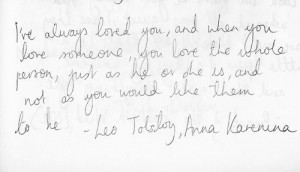 I've always loved you, and when you
love someone, you love the whole
person, just as he or she is, and
not as you would like them
to be - Leo Tolstoy, Anna Karenina